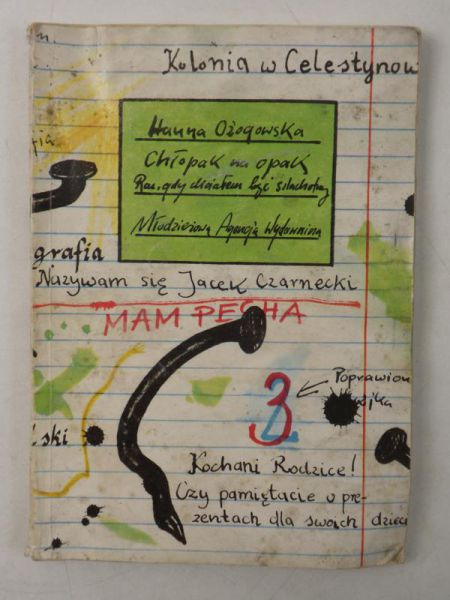 Kolonia w Celestynow
Hanna Ożogowska
Chłopak na opak
Raz, gdy chciałem być szlachetny
Młodzieżowa Agencja Wydawnicza
grafia
Nazywam się Jacek Czarnecki
MAM PECHA
3
Poprawion
ójka
ski
Kochani Rodzice!
Czy pamiętacie o pre-
zentach dla swoich dzieci